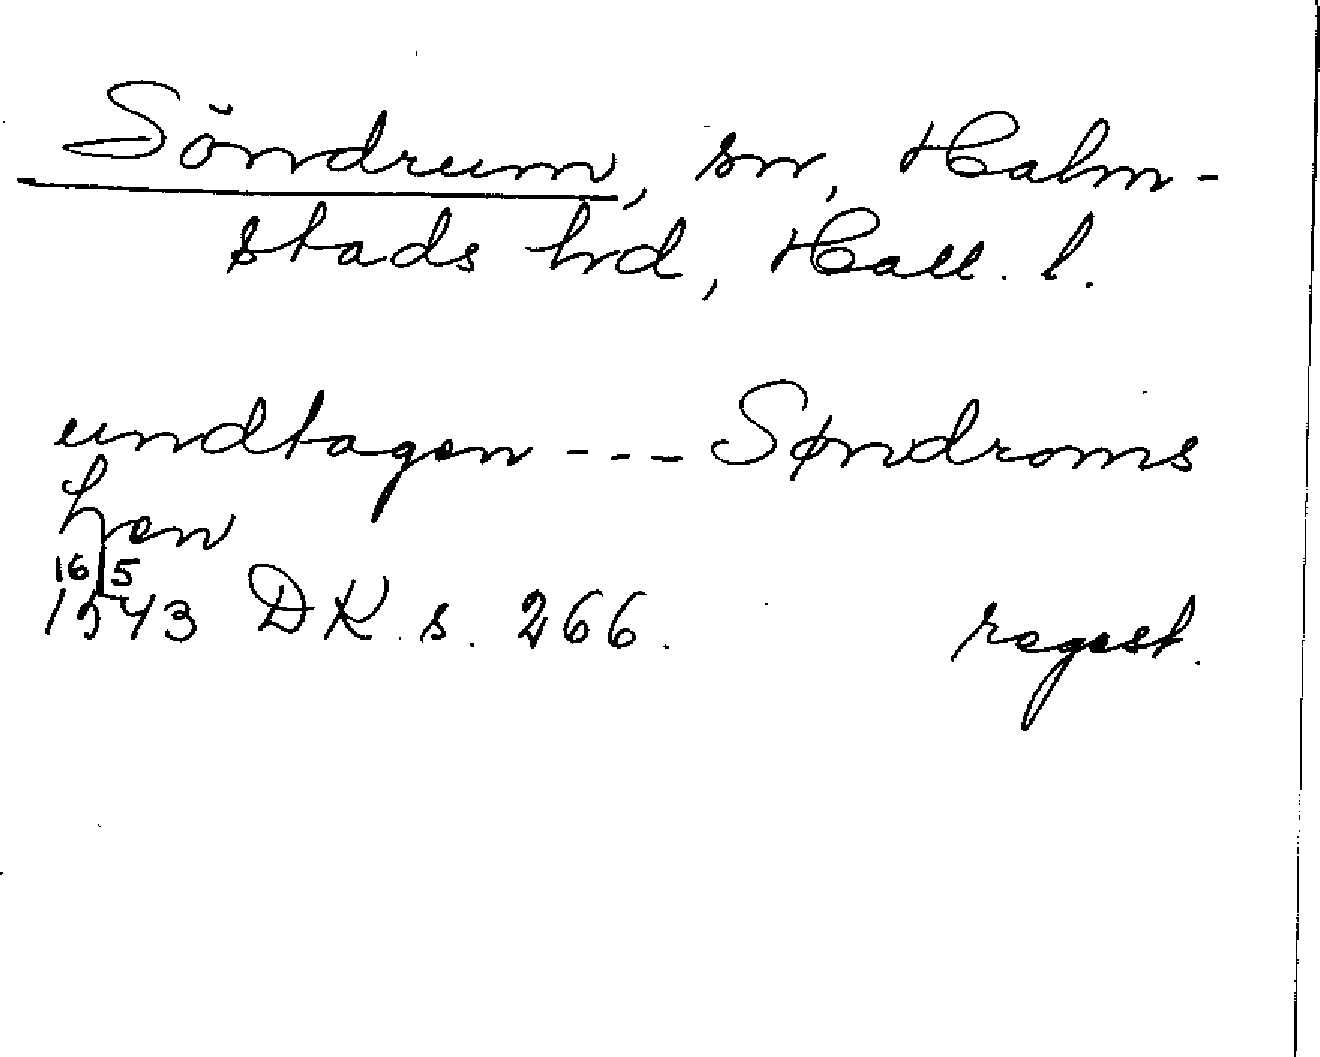 Söndrum, sn, Halm-
stads hd, Hall. l.
undtagen --- Søndroms
hren
16/5
1543 DK. s. 266. regest.